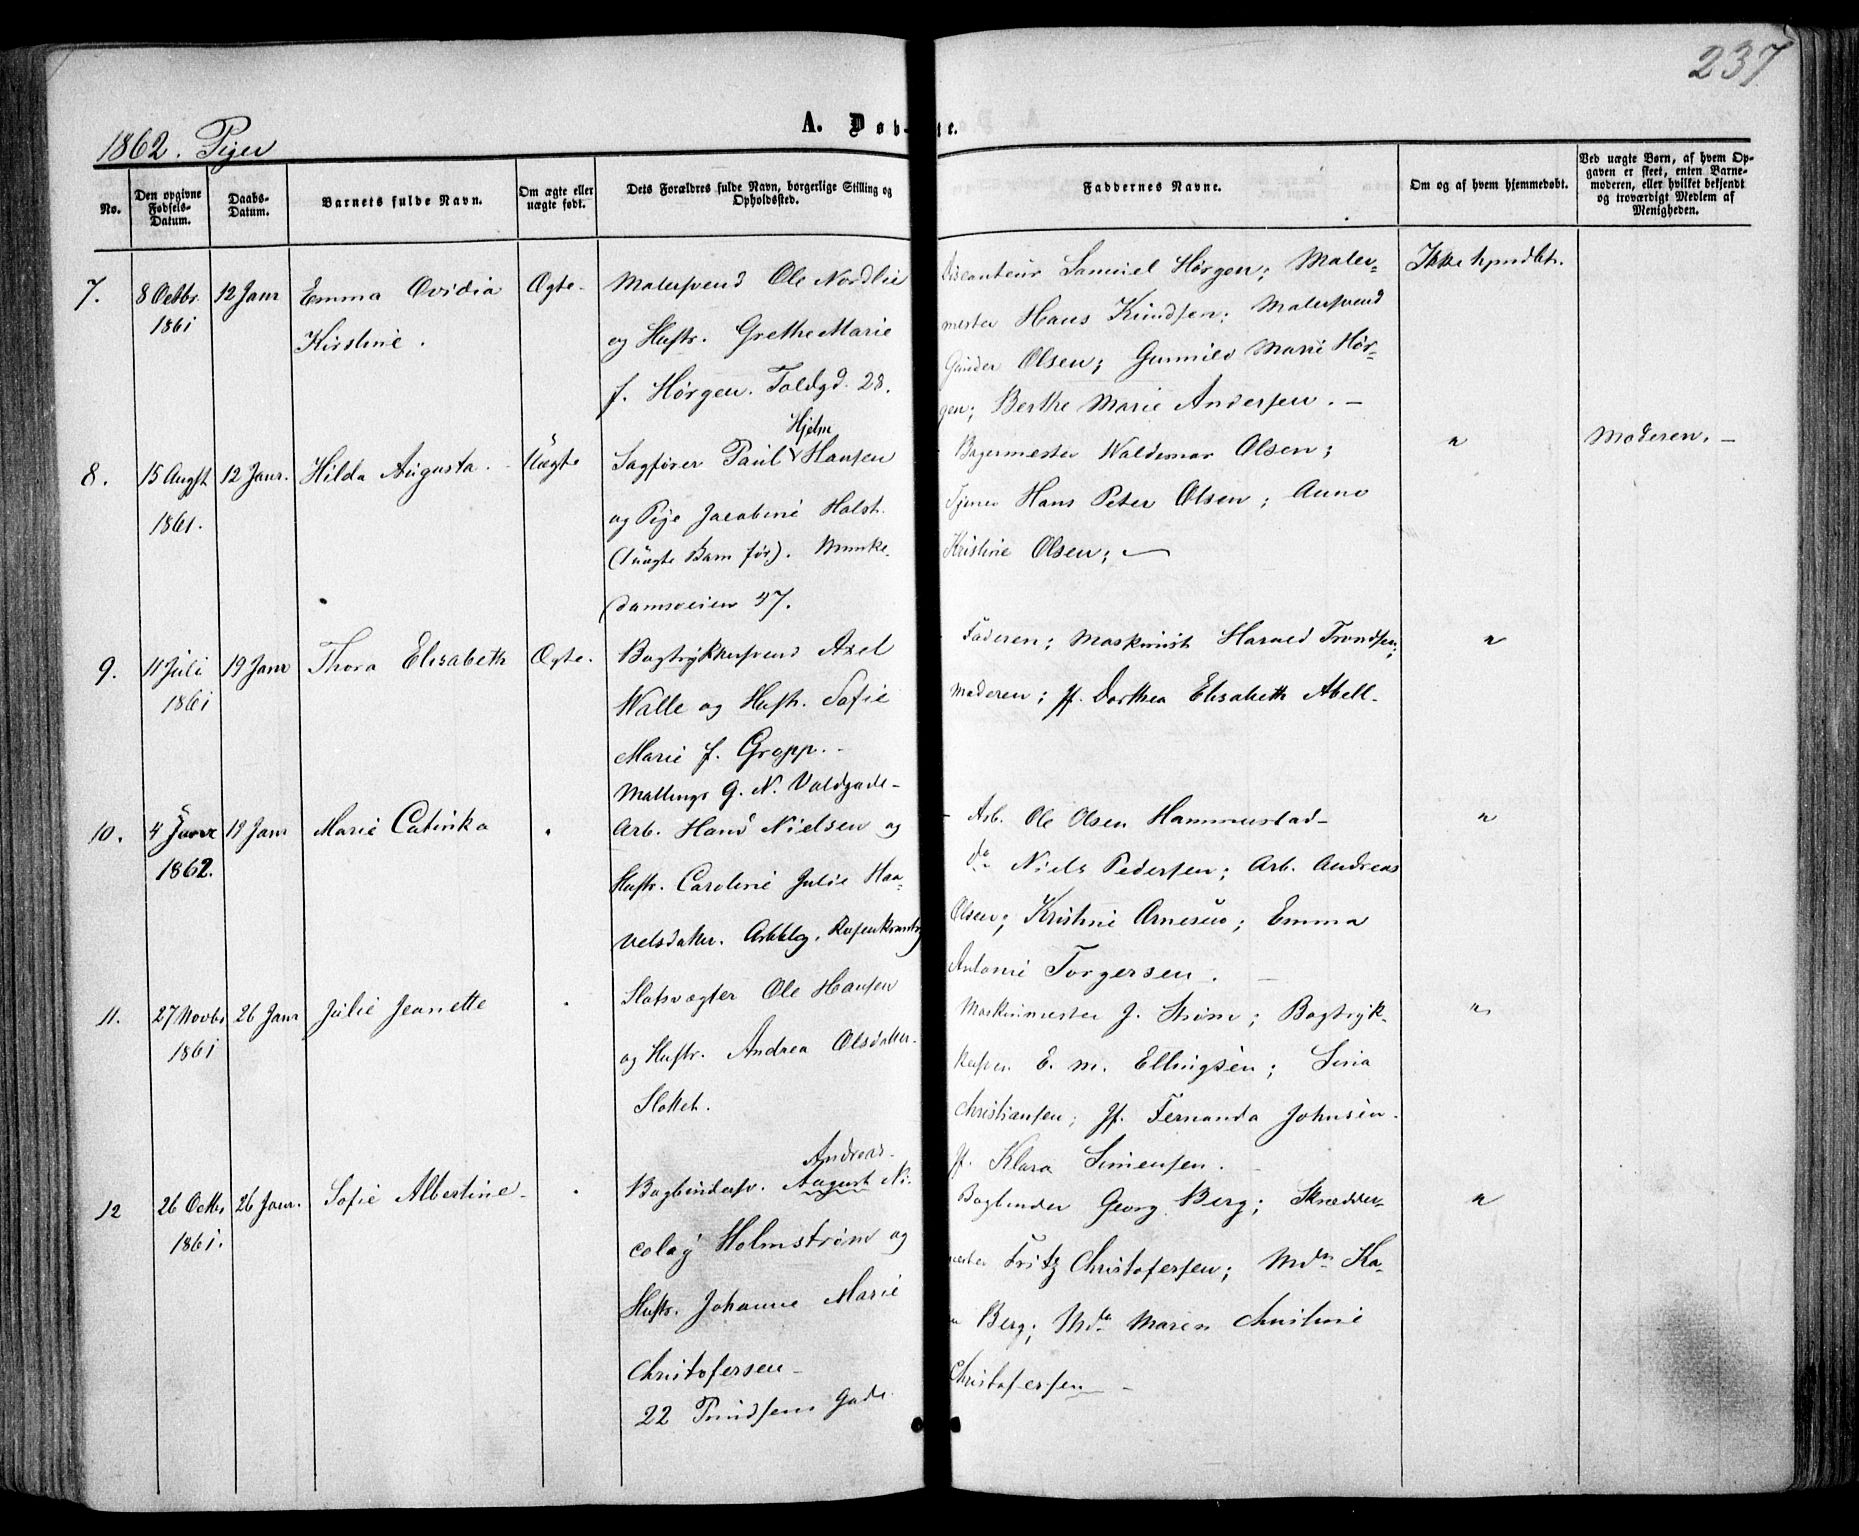 237
1862. Piger
A. Døb-
te.
No.
Den opgivne
Fødsels-
Datum.
Daabs-
Datum.
Barnets fulde Navn.
Om ægte eller
uægte født.
Dets Forældres fulde Navn, borgerlige Stilling og
Opholdssted.
Faddernes Navne.
Om og af hvem hjemmedøbt.
Ved uægte Børn, af hvem Op-
gaven er skeet, enten Barne-
moderen, eller hvilket bekjendt
og troværdigt Medlem af
Menigheden.
7.
8 Octbr
1861
12 Janr
Emma Ovidia
Kirstine.
Ægte.
Malersvend Ole Nordlie
og Hustr. Grethe Marie
f. Hørgen. Toldgd. 28.
Samuel Hørgen; Maler-
mester Hans Knudsen; Malersvend
Gunder Olsen; Gunnild Marie Hør-
gen; Berthe Marie Andersen. —
Ikke hjmdbt.
8.
15 Augst
1861.
12 Janr.
Hilda Augusta.
Uægte
Hjelm
Sagfører Paul Hansen
og Pige Jacobine Holst.
(1 uægte Barn før). Munke-
damsveien 47.
Bagermester Waldemar Olsen;
Tjener Hans Peter Olsen; Anne
Kristine Olsen; —
"
Moderen. —
9.
11 Juli
1861
19 Janr
Thora Elisabeth
Ægte.
Bogtrykkersvend Axel
Walle og Hustr. Sofie
Marie f. Gropp.
Mallings G. N. Voldgade-
Faderen; Maskinist Harald Trondsen;
Moderen; Jf. Dorthea Elisabeth Abell-
"
10.
4 Janr
1862.
19 Janr
Marie Catinka
"
Arb. Hans Nielsen og
Hustr. Caroline Julie Haa-
velsdatter. Arbblg. Rosenkrantzg
Arb. Ole Olsen Hammerstad-
do Niels Pedersen; Arb. Andreas
Olsen; Kristine Arnesen; Emma
Antonie Torgersen. —
"
11.
27 Novbr
1861
26 Janr
Julie Jeanette
"
Slotsvogter Ole Hansen
og Hustr. Andrea Olsdatter-
Slottet.
Maskinmester J. Strøm; Bogtryk-
E. M. Ellingsen; Lina
Christiansen; Jf. Fernanda Johnsen.
Jf. Klara Simensen. —
"
12
26 Octbr
1861.
26 Janr.
Sofie Albertine-
"
Andreas-
Bogbindersv. August Ni-
colay Holmstrøm og
Hustr. Johanne Marie
Christofersen-
22 Gade
Bogbinder Georg Berg; Skrædder-
mester Fritz Christofersen; Mdm Ka-
Berg; Mdm Maren Christine
Christofersen —
"